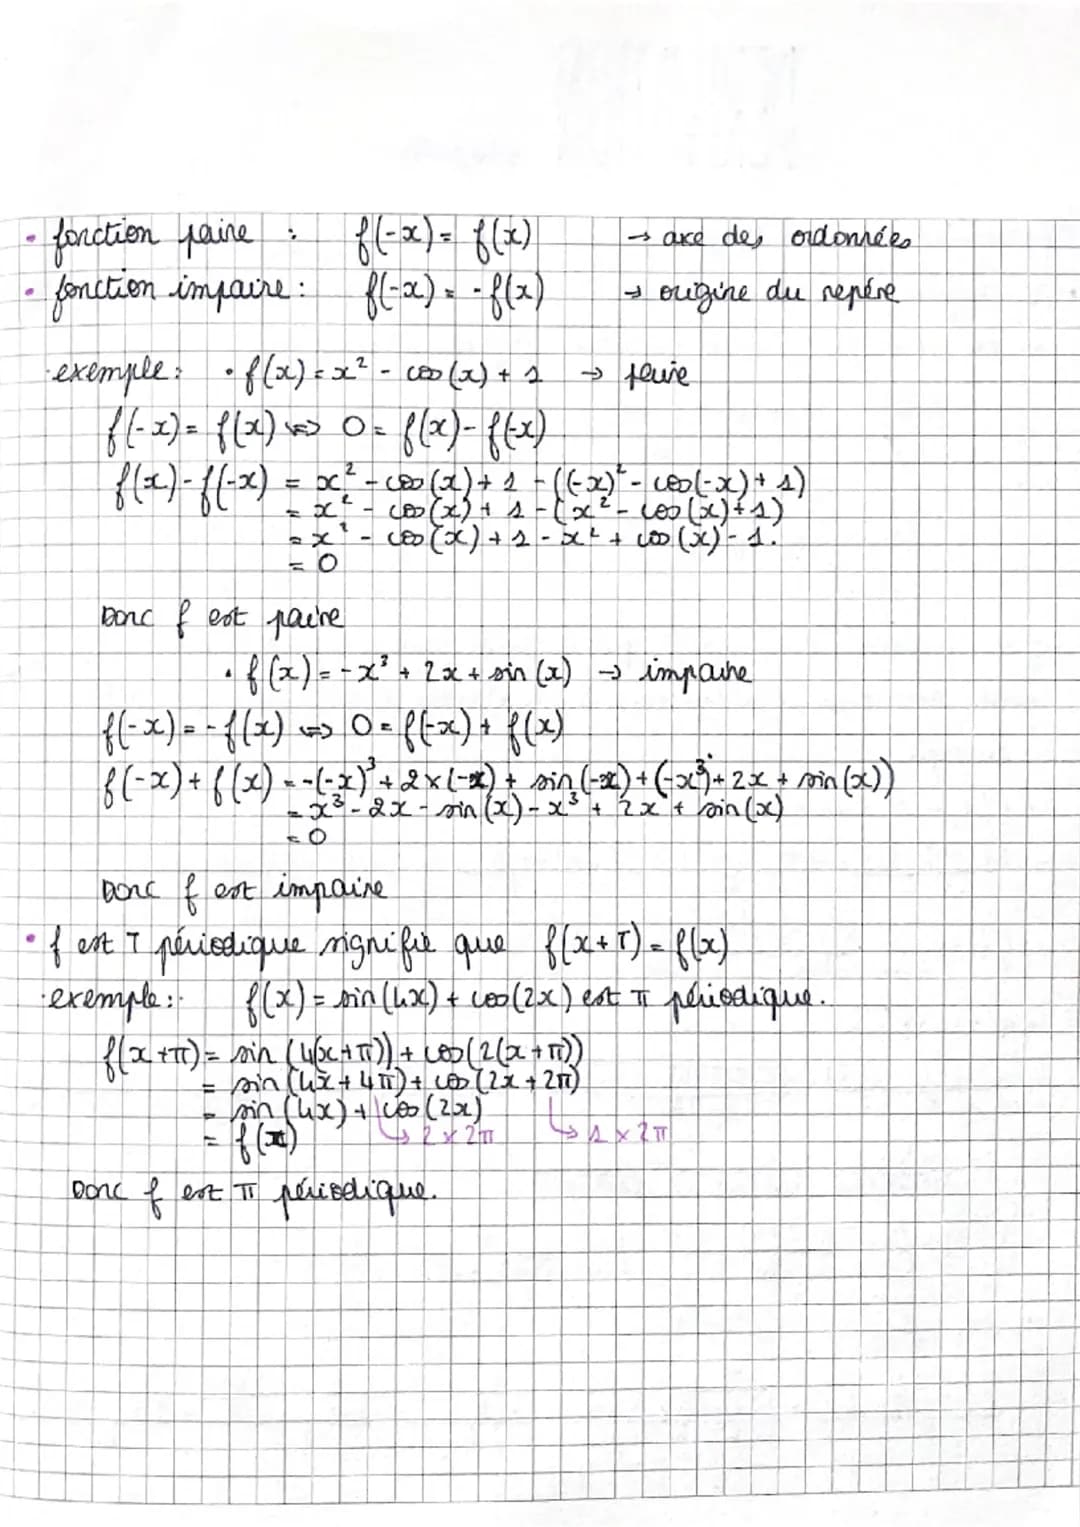 • fonction paire : f(-x) = f(x) → axe des ordonnées
• fonction impaire : f(-x) = -f(x) → origine du repère
exemple : • f(x) = x² - cos(x) + 1 → paire
f(-x) = f(x) <=> 0 = f(x) - f(-x)
f(x) - f(-x) = x² - cos(x) + 1 - ((-x)² - cos(-x) + 1)
= x² - cos(x) + 1 - (x² - cos(x) + 1)
= x² - cos(x) + 1 - x² + cos(x) - 1.
= 0
Donc f est paire
• f(x) = -x³ + 2x + sin(x) → impaire
f(-x) = -f(x) <=> 0 = f(-x) + f(x)
f(-x) + f(x) = -(-x)³ + 2×(-x) + sin(-x) + (-x³) + 2x + sin(x))
= x³ - 2x - sin(x) - x³ + 2x + sin(x)
= 0
Donc f est impaire
• f est T périodique signifie que f(x+T) = f(x)
exemple : f(x) = sin(4x) + cos(2x) est π périodique.
f(x+π) = sin(4(x+π)) + cos(2(x+π))
= sin(4x + 4π) + cos(2x + 2π)
= sin(4x) + cos(2x)
= f(x) ↳ 2×2π ↳ 1×2π
Donc f est π périodique.